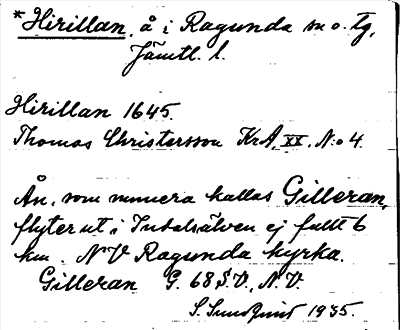 *Hirillan, å i Ragunda sn o. tg,
Jämtl. l.
Hirillan 1645.
Thomas Christersson KrA, XX, N:o 4.
Ån, som numera kallas Gilleran,
flyter ut i Indalsälven ej fullt 6
km. NV Ragunda kyrka.
Gilleran G. 68 S.V., N.V.
S. Sundquist 1935.